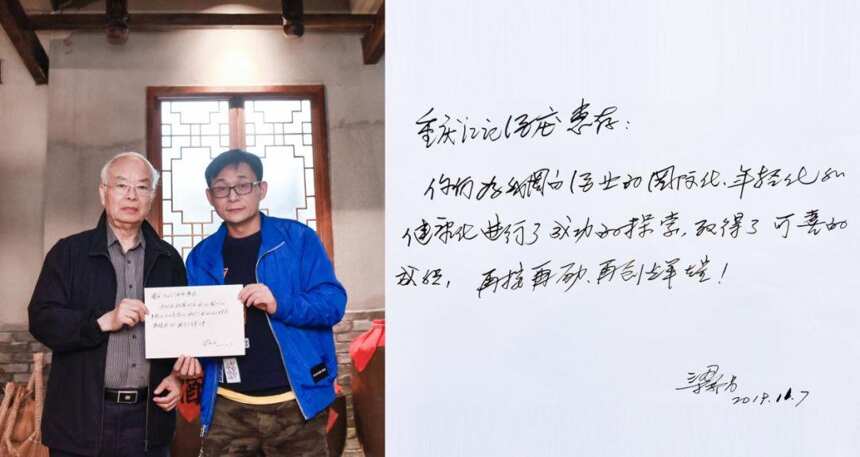 重庆江记酒庄惠存：
你们为我国白酒业的国际化、年轻化和
健康化进行了成功的探索，取得了可喜的
成绩，再接再砺、再创辉煌！
2019.11.7